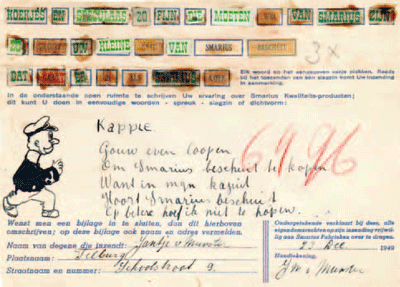 KOEKJES EN SPECULAAS ZO FIJN DIE MOETEN VAN SMARIUS ZIJN
EN UW KLEINE VAN SMARIUS BESCHUIT
3x
DAT
Elk woord op het aangegeven vakje plakken. Reeds
bij het toezenden van één slagzin komt Uw inzending
in aanmerking.
In de onderstaande open ruimte te schrijven Uw ervaring over Smarius Kwaliteits-producten;
dit kunt U doen in eenvoudige woorden - spreuk - slagzin of dichtvorm:
Kappie
Gouw even loopen
Om Smarius beschuit te kopen
Want in mijn kajuit
Hoort Smarius beschuit
Op betere hoef ik niet te hopen
6496
Wenst men een bijlage in te sluiten, dan dit hierboven
omschrijven; op deze bijlage ook naam en adres vermelden.
Naam van degene die inzendt: Jantje v Munster
Plaatsnaam: Tilburg
Straatnaam en nummer: Schoolstraat 9.
Ondergetekende verklaart bij deze, alle
eigendomsrechten op zijn inzending vrijwillig
aan Smarius Fabrieken over te dragen.
23 Dec. 1949
Handtekening,
J v Munster